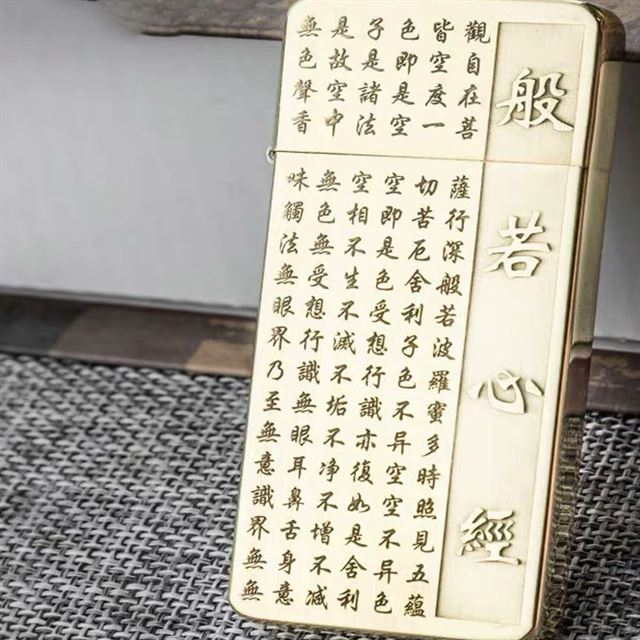 般若心經
觀自在菩薩行深般若波羅蜜多時照見五蘊
皆空度一切苦厄舍利子色不异空空不异色
色即是空空即是色受想行識亦復如是舍利
子是諸法空相不生不滅不垢不净不增不减
是故空中無色無受想行識無眼耳鼻舌身意
無色聲香味觸法無眼界乃至無意識界無無